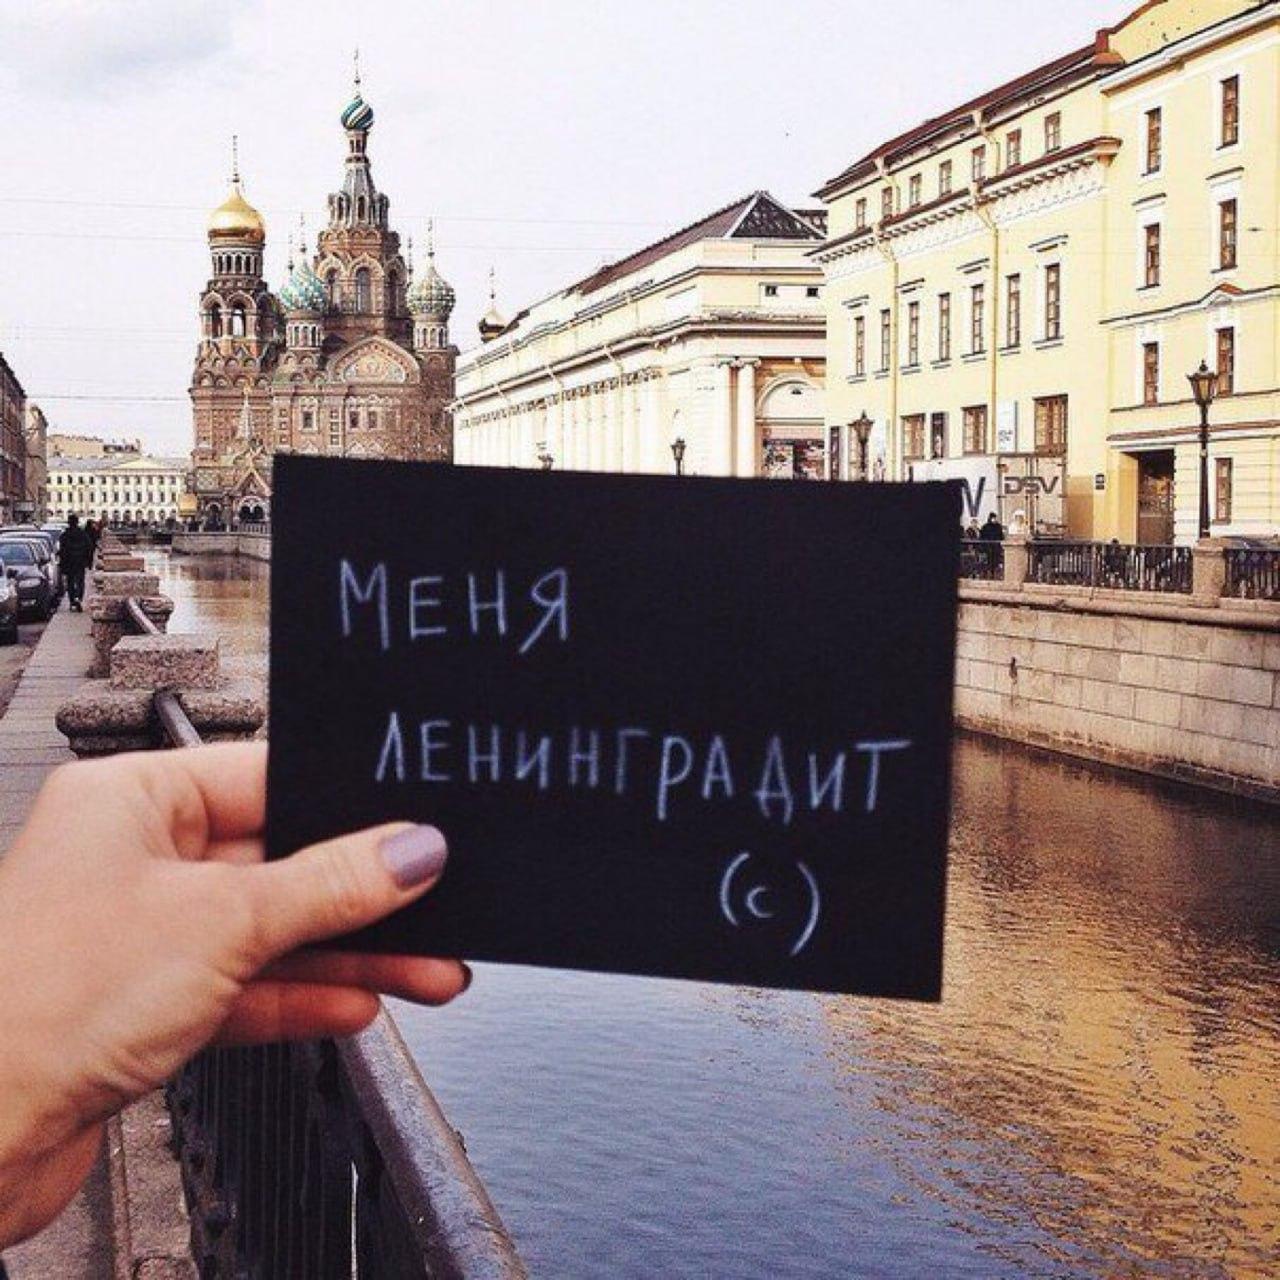 Меня
ленинградит
(с)
DSV